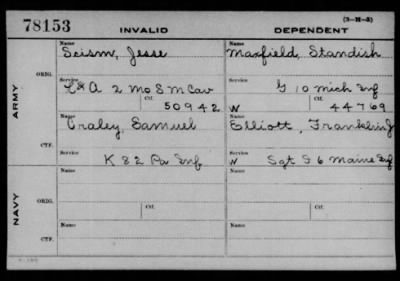 78153 INVALID DEPENDENT (3-H-5)
Name Name
Scism, Jesse Maxfield, Standish
ORIG.
Service Service
L & A 2 Mo S M Cav G 10 Mich Inf
Ctf. Ctf.
50942 W 44769
ARMY
Name Name
Craley, Samuel Elliott, Franklin J
CTF.
Service Service
K 82 Pa Inf W Sgt S 6 Maine Inf
Name Name
ORIG.
Ctf. Ctf.
NAVY
Name Name
CTF.